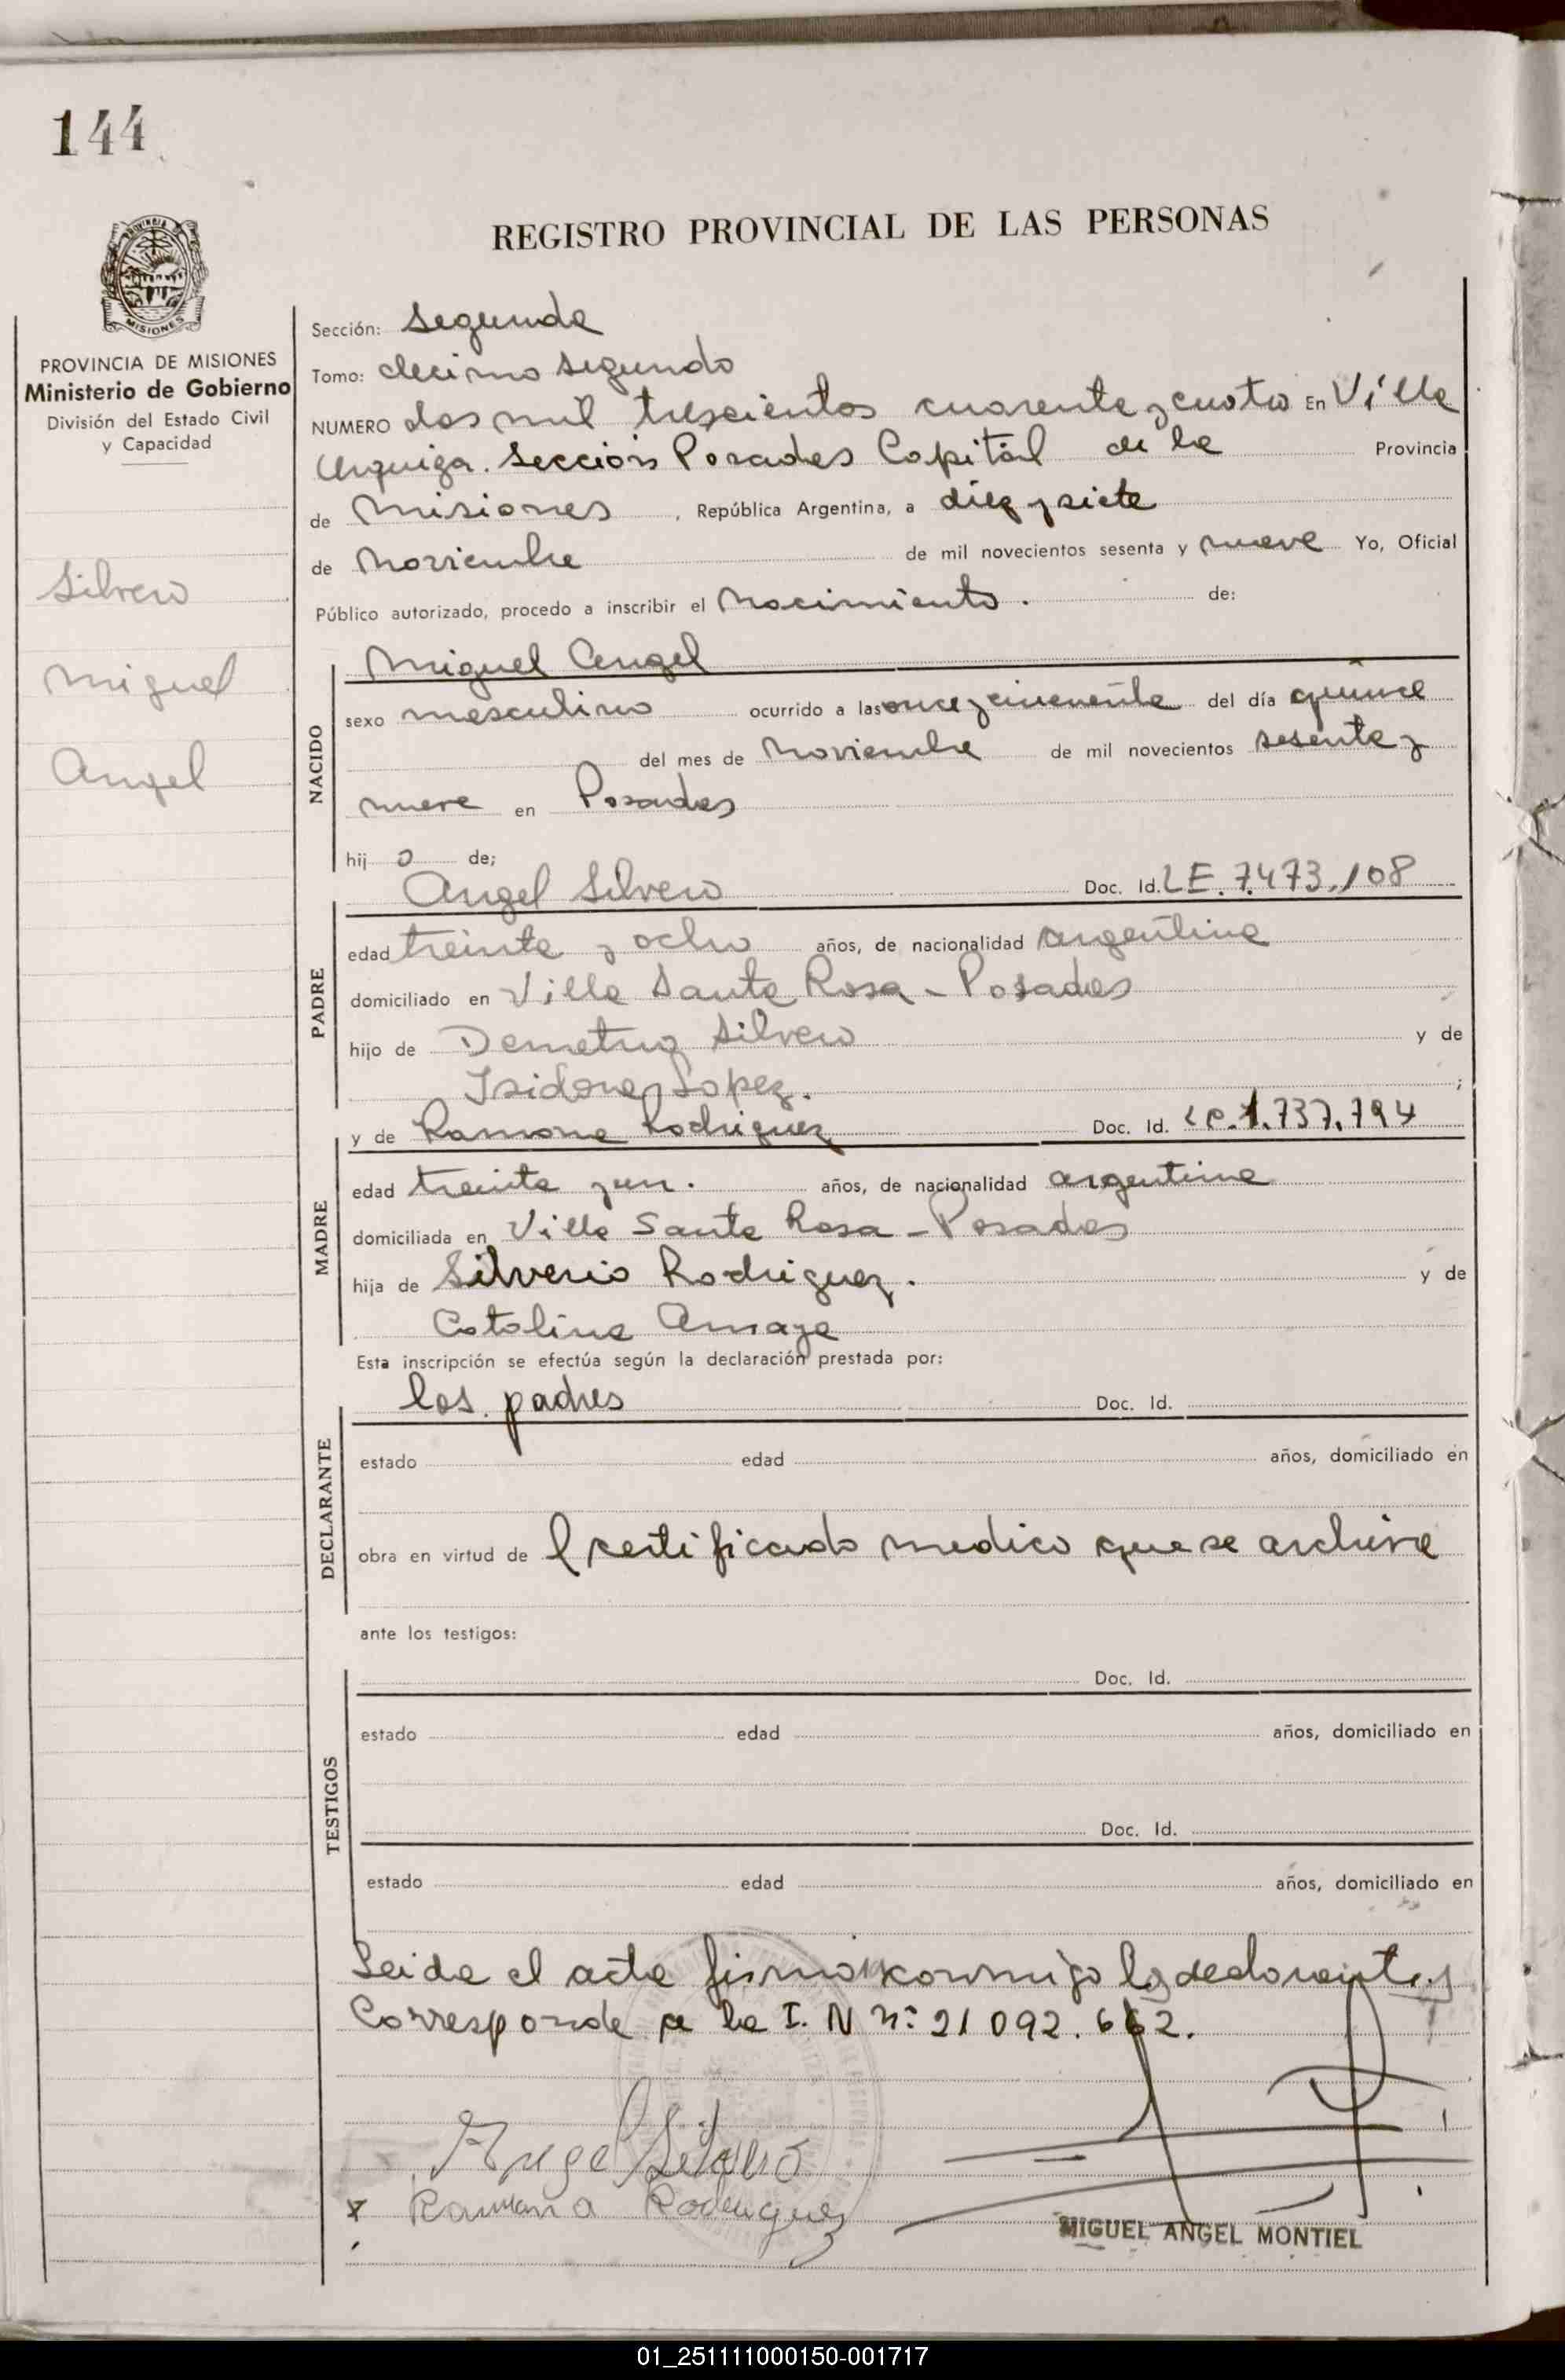 144
REGISTRO PROVINCIAL DE LAS PERSONAS
MISIONES
PROVINCIA DE MISIONES
Ministerio de Gobierno
División del Estado Civil
y Capacidad
Silvero
Miguel
Angel
Sección: Segunda
Tomo: decimo segundo
NUMERO dos mil trescientos cuarenta y cuatro En Villa
Urquiza. Sección Posadas Capital de la Provincia
de Misiones, República Argentina, a diez y siete
de Noviembre de mil novecientos sesenta y nueve Yo, Oficial
Público autorizado, procedo a inscribir el Nacimiento. de:
Miguel Angel
NACIDO
sexo masculino ocurrido a las once y cincuenta del día quince
del mes de Noviembre de mil novecientos sesenta y
nueve en Posadas
hijo de;
PADRE
Angel Silvero Doc. Id. LE. 7.473.108
edad treinta y ocho años, de nacionalidad argentina
domiciliado en Villa Santa Rosa - Posadas
hijo de Demetrio Silvero y de
Isidora Lopez. ;
MADRE
y de Ramona Rodriguez Doc. Id. LC. 1.737.794
edad treinta y un. años, de nacionalidad argentina
domiciliada en Villa Santa Rosa - Posadas
hija de Silverio Rodriguez. y de
Catalina Amaya
Esta inscripción se efectúa según la declaración prestada por:
DECLARANTE
los padres Doc. Id.
estado edad años, domiciliado en
obra en virtud de l certificado medico que se archiva
ante los testigos:
TESTIGOS
Doc. Id.
estado edad años, domiciliado en
Doc. Id.
estado edad años, domiciliado en
Leida el acta firman conmigo los declarantes
Corresponde a la I. N nº 21 092. 662.
Angel Silvero
x Ramona Rodriguez
MIGUEL ANGEL MONTIEL
01_251111000150-001717